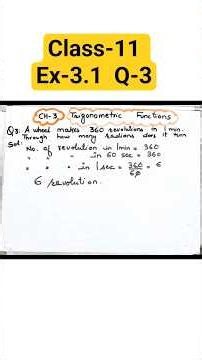 Class-11
Ex-3.1 Q-3
CH-3 Trigonometric Functions
Q3: A wheel makes 360 revolutions in 1 min.
Through how many radians does it turn
Sol: No. of revolution in 1min = 360
" " " in 60 sec = 360
" " " in 1 sec = 360/60 = 6
6 revolution.